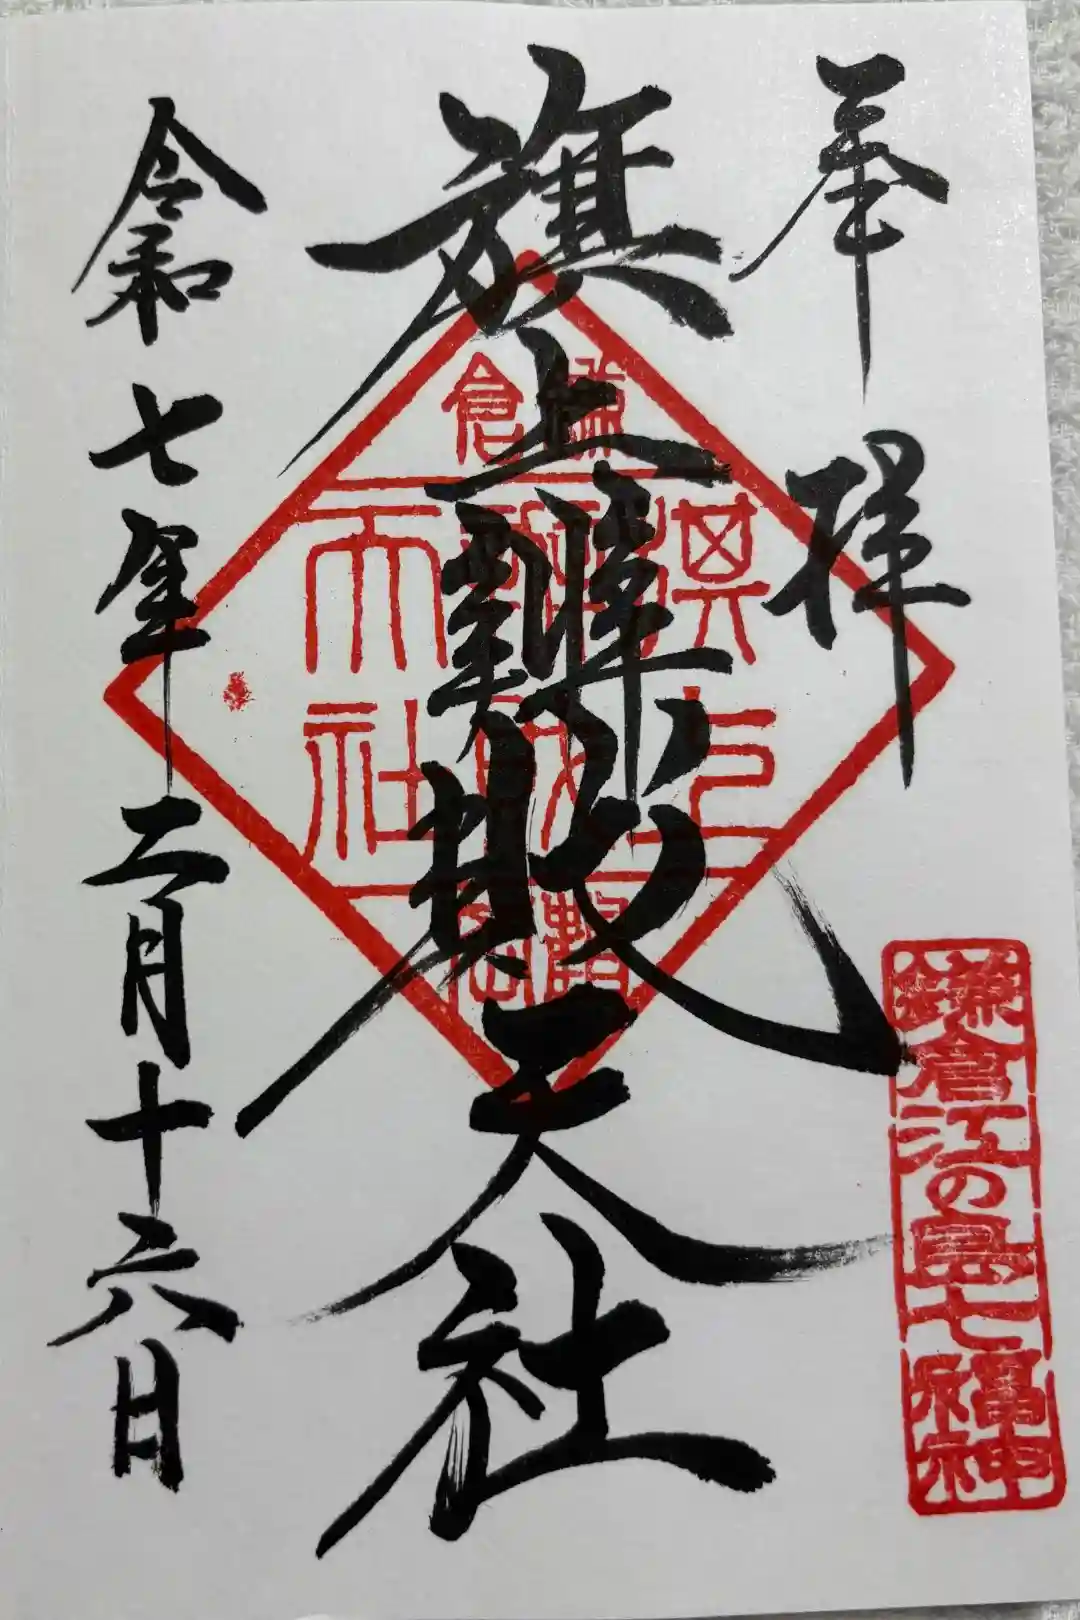 奉拝
旗上辨財天社
令和七年二月十六日
鎌倉
旗上
天社
鎌倉江の島七福神